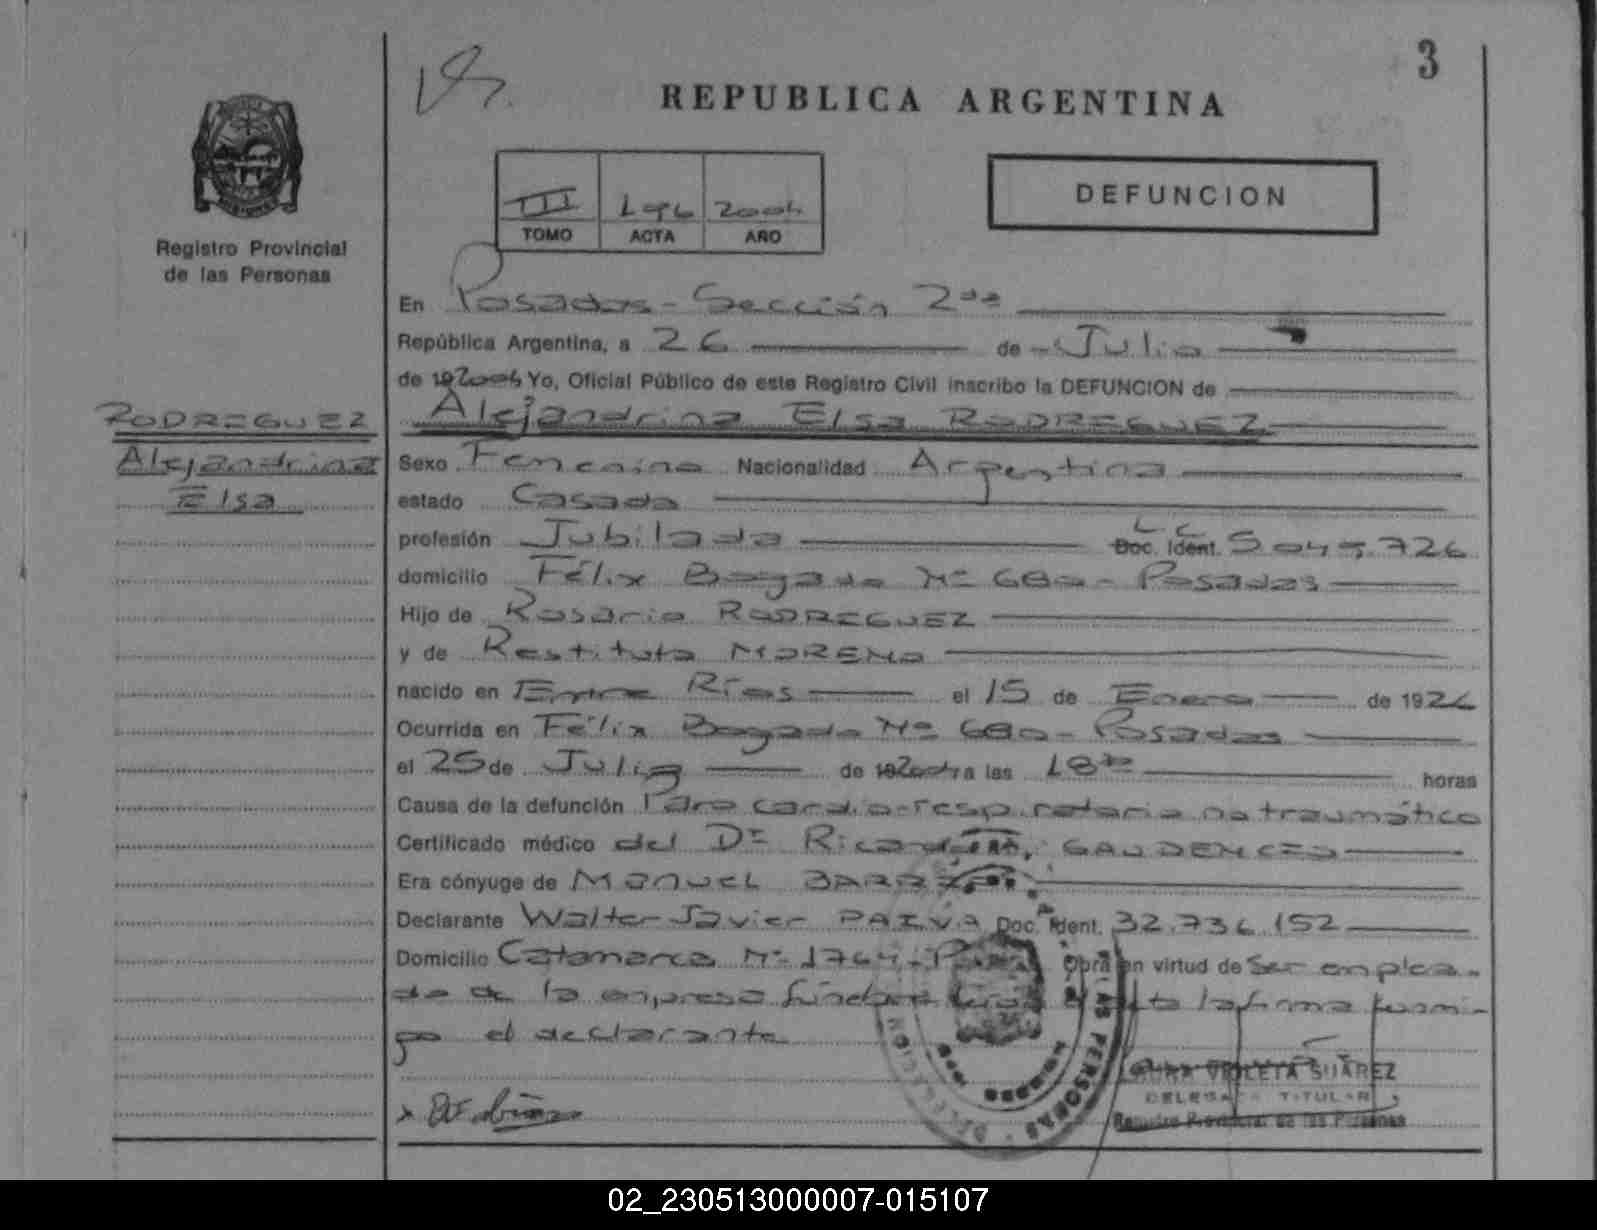 3
REPUBLICA ARGENTINA
DEFUNCION
III 196 2004
TOMO ACTA AÑO
Registro Provincial
de las Personas
En Posadas - Sección 2da
República Argentina, a 26 de Julio
de 192004 Yo, Oficial Público de este Registro Civil inscribo la DEFUNCION de
RODREGUEZ
Alejandrina
Elsa
Alejandrina Elsa RODREGUEZ
Sexo Femenino Nacionalidad Argentina
estado Casada
profesión Jubilada Doc. Ident. L C 5.045.726
domicilio Félix Bogado Nº 680 - Posadas
Hijo de Rosario RODREGUEZ
y de Restituta MORENO
nacido en Entre Ríos el 15 de Enero de 1926
Ocurrida en Félix Bogado Nº 680 - Posadas
el 25 de Julio de a las 18 horas
Causa de la defunción Paro cardio-respiratorio no traumático
Certificado médico del Dr Ricardo
Era cónyuge de MANUEL
Declarante Walter Javier PAIVA Doc. Ident. 32.736.152
Domicilio Catamarca Nº 1764 - Obra en virtud de Ser emplea-
do de la empresa fúnebre la firma conmi-
go el declarante
LAURA VIOLETA SUAREZ
DELEGADA TITULAR
Registro Provincial de las Personas
02_230513000007-015107